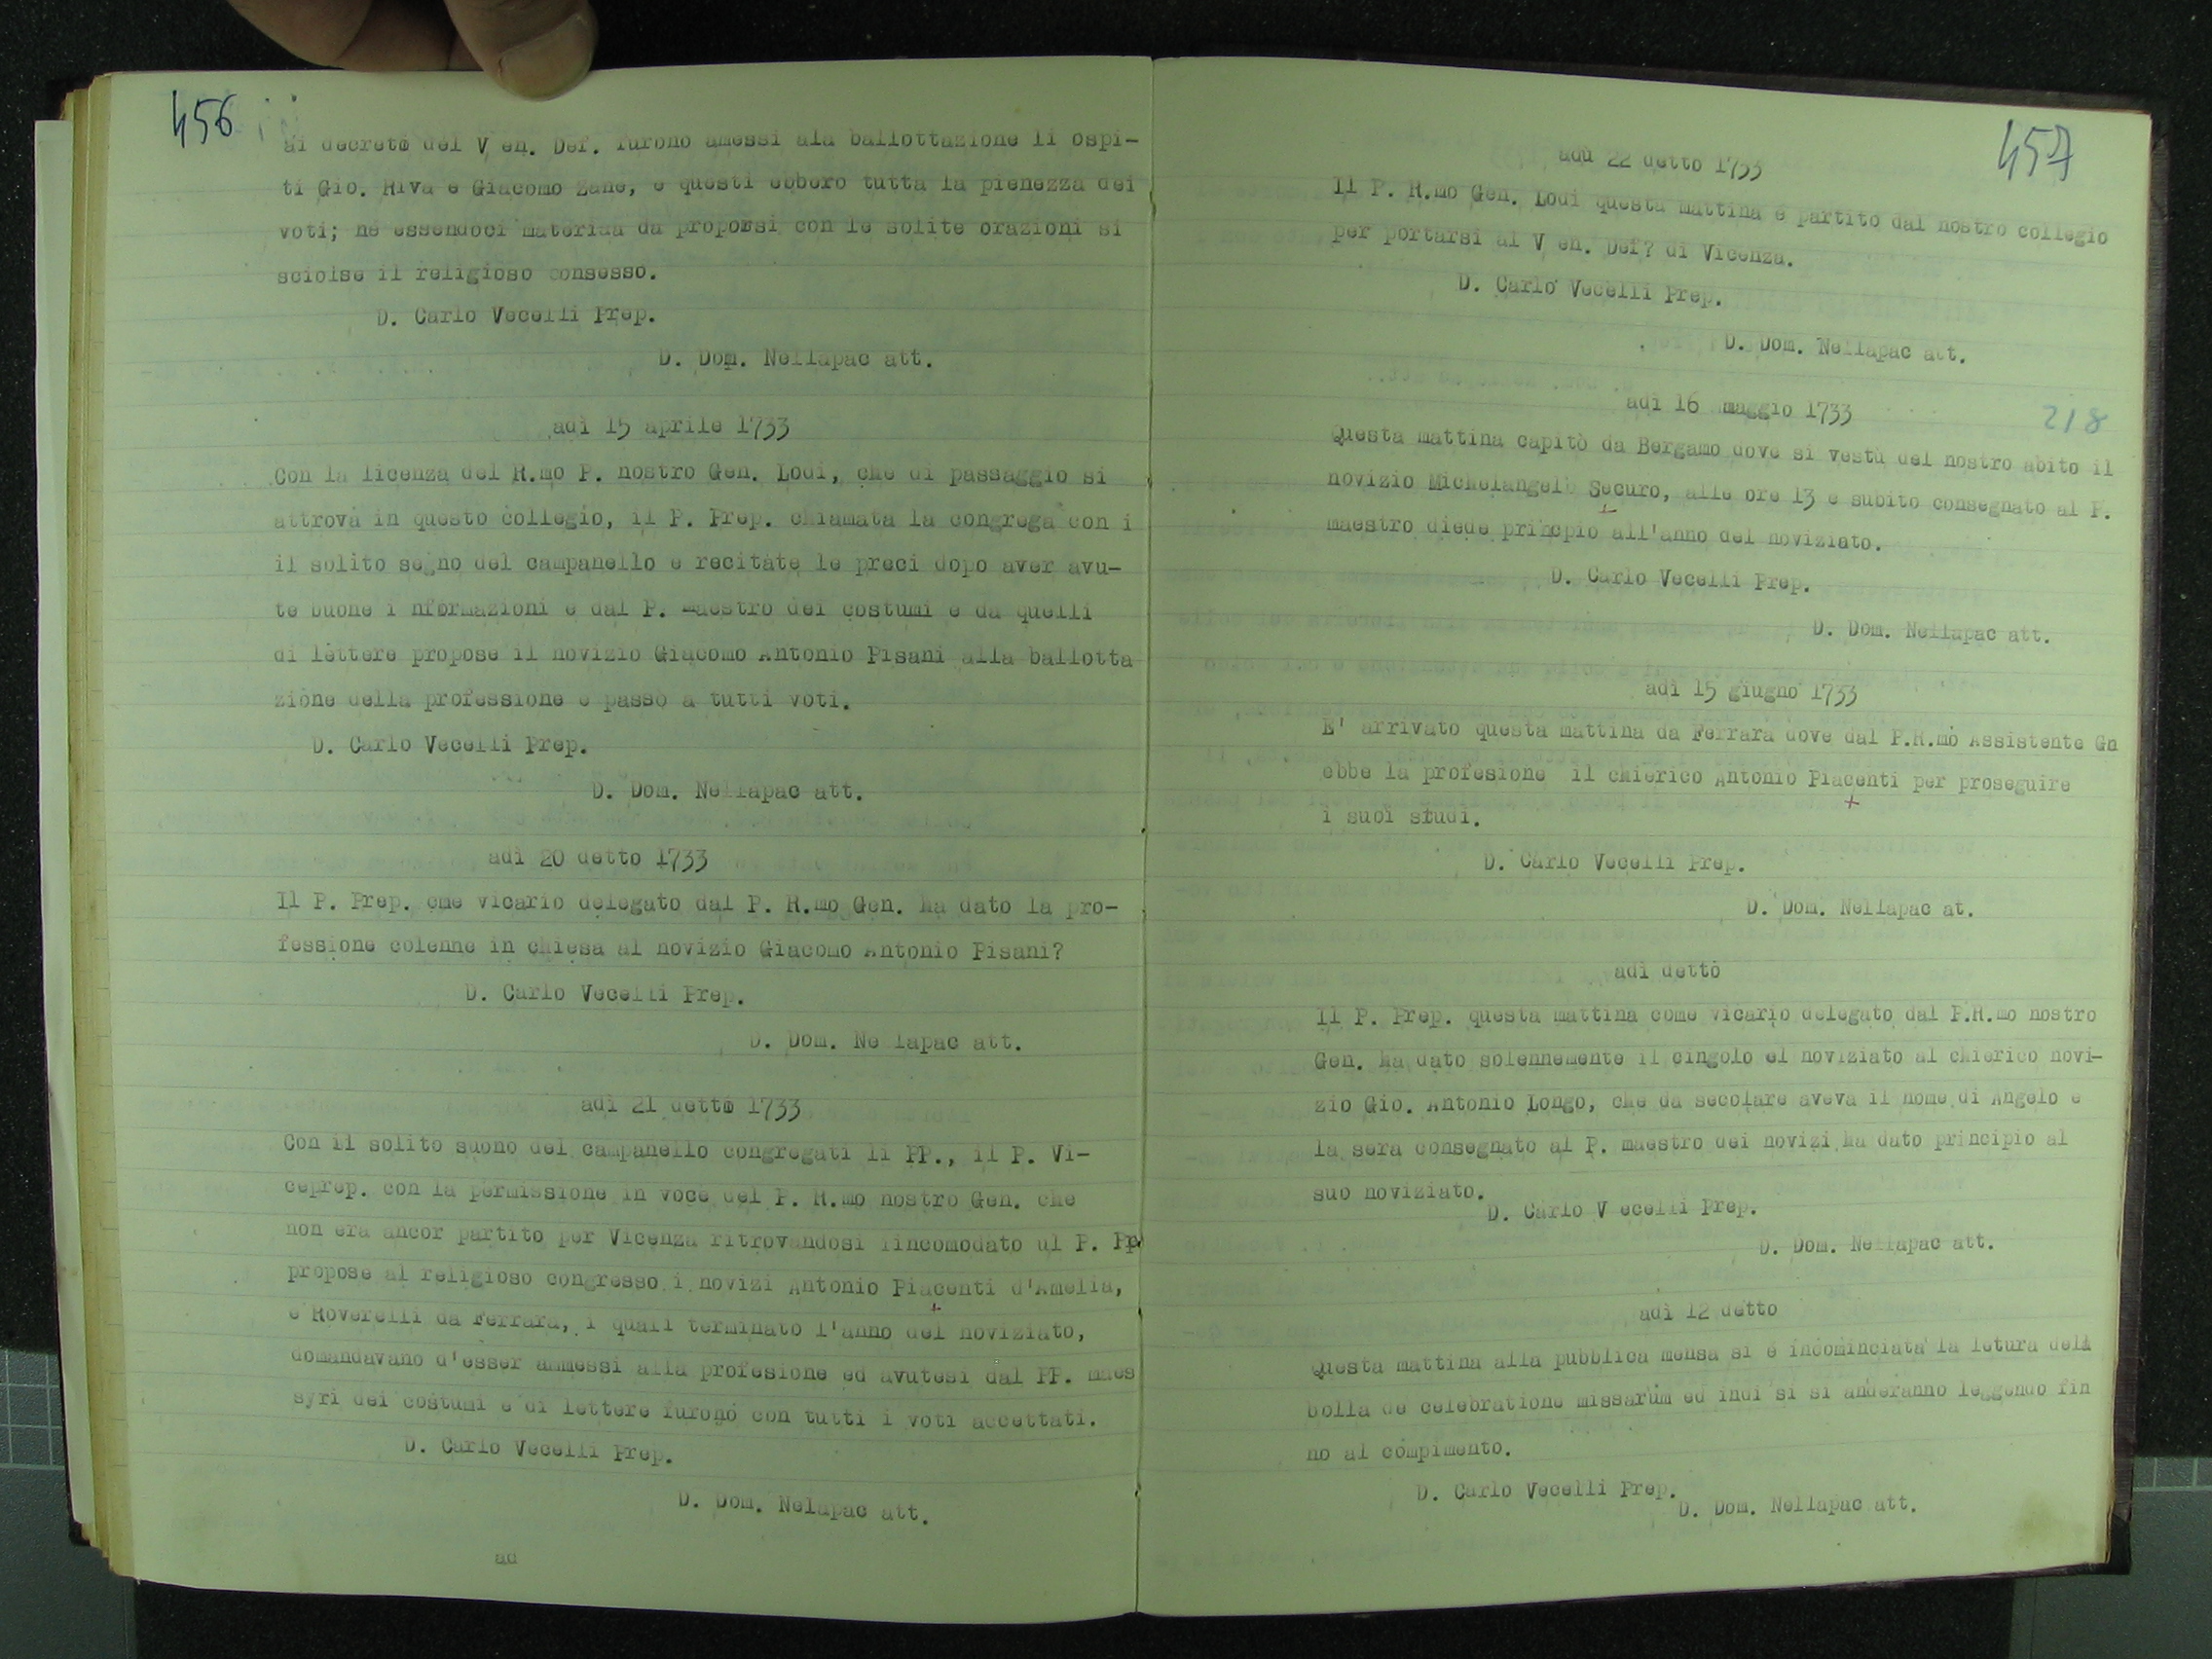 456
al decreto del V en. Def. furono amessi ala ballottazione li ospi-
ti Gio. Riva e Giacomo Zane, e questi ebbero tutta la pienezza dei
voti; ne essendoci materiaa da proporsi con le solite orazioni si
sciolse il religioso consesso.
D. Carlo Vecelli Prep.
D. Dom. Nellapac att.
adì 15 aprile 1733
Con la licenza del R.mo P. nostro Gen. Lodi, che di passaggio si
attrova in questo collegio, il P. Prep. chiamata la congrega con i
il solito segno del campanello e recitate le preci dopo aver avu-
te buone i nformazioni e dal P. maestro dei costumi e da quelli
di lettere propose il novizio Giacomo Antonio Pisani alla ballotta
zione della professione e passò a tutti voti.
D. Carlo Vecelli Prep.
D. Dom. Nellapac att.
adì 20 detto 1733
Il P. Prep. ome vicario delegato dal P. R.mo Gen. ha dato la pro-
fessione colenne in chiesa al novizio Giacomo Antonio Pisani?
D. Carlo Vecelli Prep.
D. Dom. Ne lapac att.
adì 21 detto 1733
Con il solito suono del campanello congregati li PP., il P. Vi-
ceprep. con la permissione in voce del P. R.mo nostro Gen. che
non era ancor partito per Vicenza ritrovandosi iincomodato ul P. Pp
propose al religioso congresso i novizi Antonio Piacenti d'Amelia,
e Roverelli da Ferrara, i quali terminato l'anno del noviziato,
domandavano d'esser ammessi alla profesione ed avutesi dal PP. maes
syri dei costumi e di lettere furono con tutti i voti accettati.
D. Carlo Vecelli Prep.
D. Dom. Nelapac att.
ad
457
adù 22 detto 1733
Il P. R.mo Gen. Lodi questa mattina è partito dal nostro collegio
per portarsi al V en. Def? di Vicenza.
D. Carlo Vecelli Prep.
D. Dom. Nellapac att.
adì 16 maggio 1733
218
Questa mattina capitò da Bergamo dove si vestù del nostro abito il
novizio Michelangelo Securo, alle ore 13 e subito consegnato al P.
maestro diede principio all'anno del noviziato.
D. Carlo Vecelli Prep.
D. Dom. Nellapac att.
adì 15 giugno 1733
E' arrivato questa mattina da Ferrara dove dal P.R.mo Assistente Gn
ebbe la profesione il chierico Antonio Piacenti per proseguire
i suoi studi.
D. Carlo Vecelli Prep.
D. Dom. Nellapac at.
adì detto
Il P. Prep. questa mattina come vicario delegato dal P.R.mo nostro
Gen. ha dato solennemente il cingolo el noviziato al chierico novi-
zio Gio. Antonio Longo, che da secolare aveva il nome di Angelo e
la sera consegnato al P. maestro dei novizi ha dato principio al
suo noviziato.
D. Carlo V ecelli Prep.
D. Dom. Nellapac att.
adì 12 detto
Questa mattina alla pubblica mensa si è incominciata la letura della
bolla de celebratione missarum ed indi si si anderanno leggendo fin
no al compimento.
D. Carlo Vecelli Prep.
D. Dom. Nellapac att.